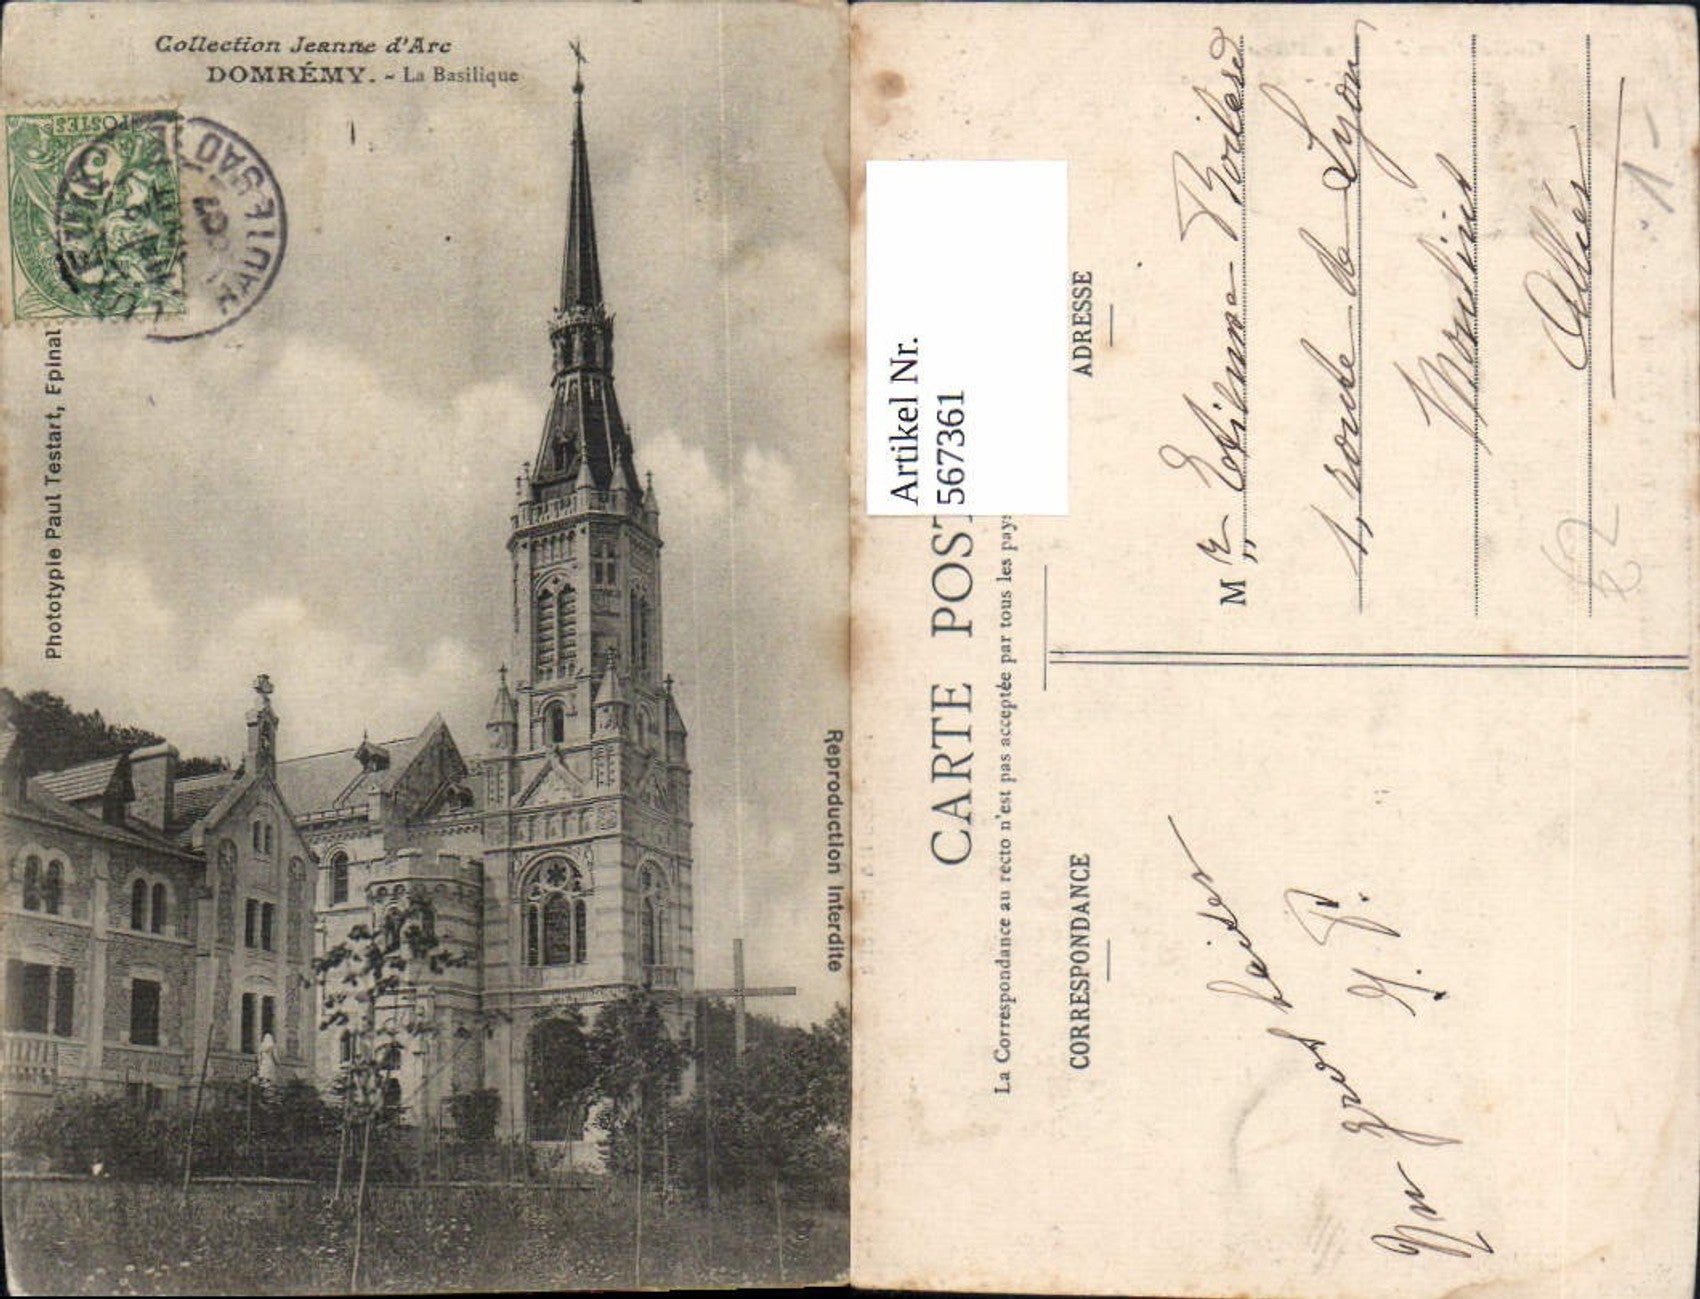 Collection Jeanne d'Arc
DOMRÉMY. - La Basilique
POSTES
Phototypie Paul Testart, Epinal
Reproduction Interdite
Artikel Nr.
567361
CARTE POST
La Correspondance au recto n'est pas acceptée par tous les pays
CORRESPONDANCE
Un gros baiser
ADRESSE
M
Etienne
1, route de Lyon
Moulins
Allier
62
1-